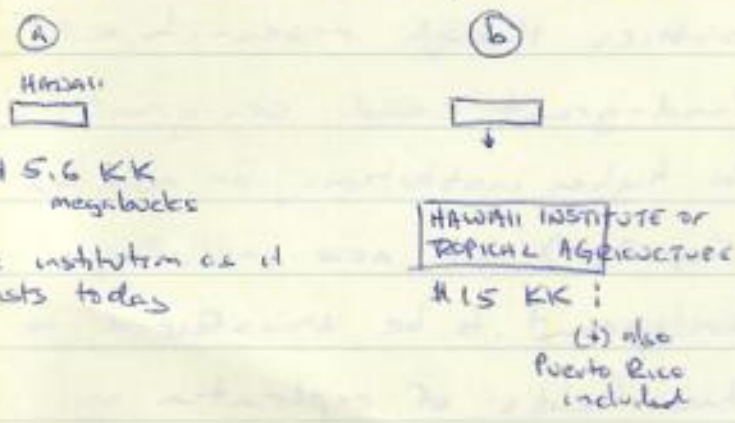 a
HAWAII
$ 5.6 KK
megabucks
institution as it
today
b
HAWAII INSTITUTE OF
TROPICAL AGRICULTURE
$15 KK
(+) also
Puerto Rico
included